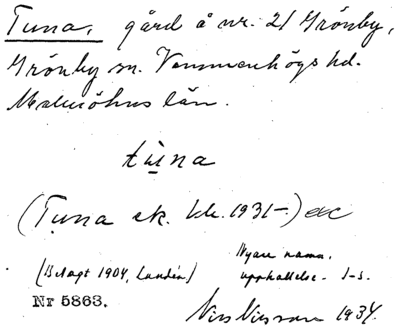 Tuna, gård å nr. 21 Grönby,
Grönby sn. Vemmenhögs hd.
Malmöhus län.
tùna
(Tuna ek. kk. 1931-)
(Belagt 1904, Lundén)
Nyare namn.
uppkallelse.
Nr 5863.
Nils Nilsson 1934.